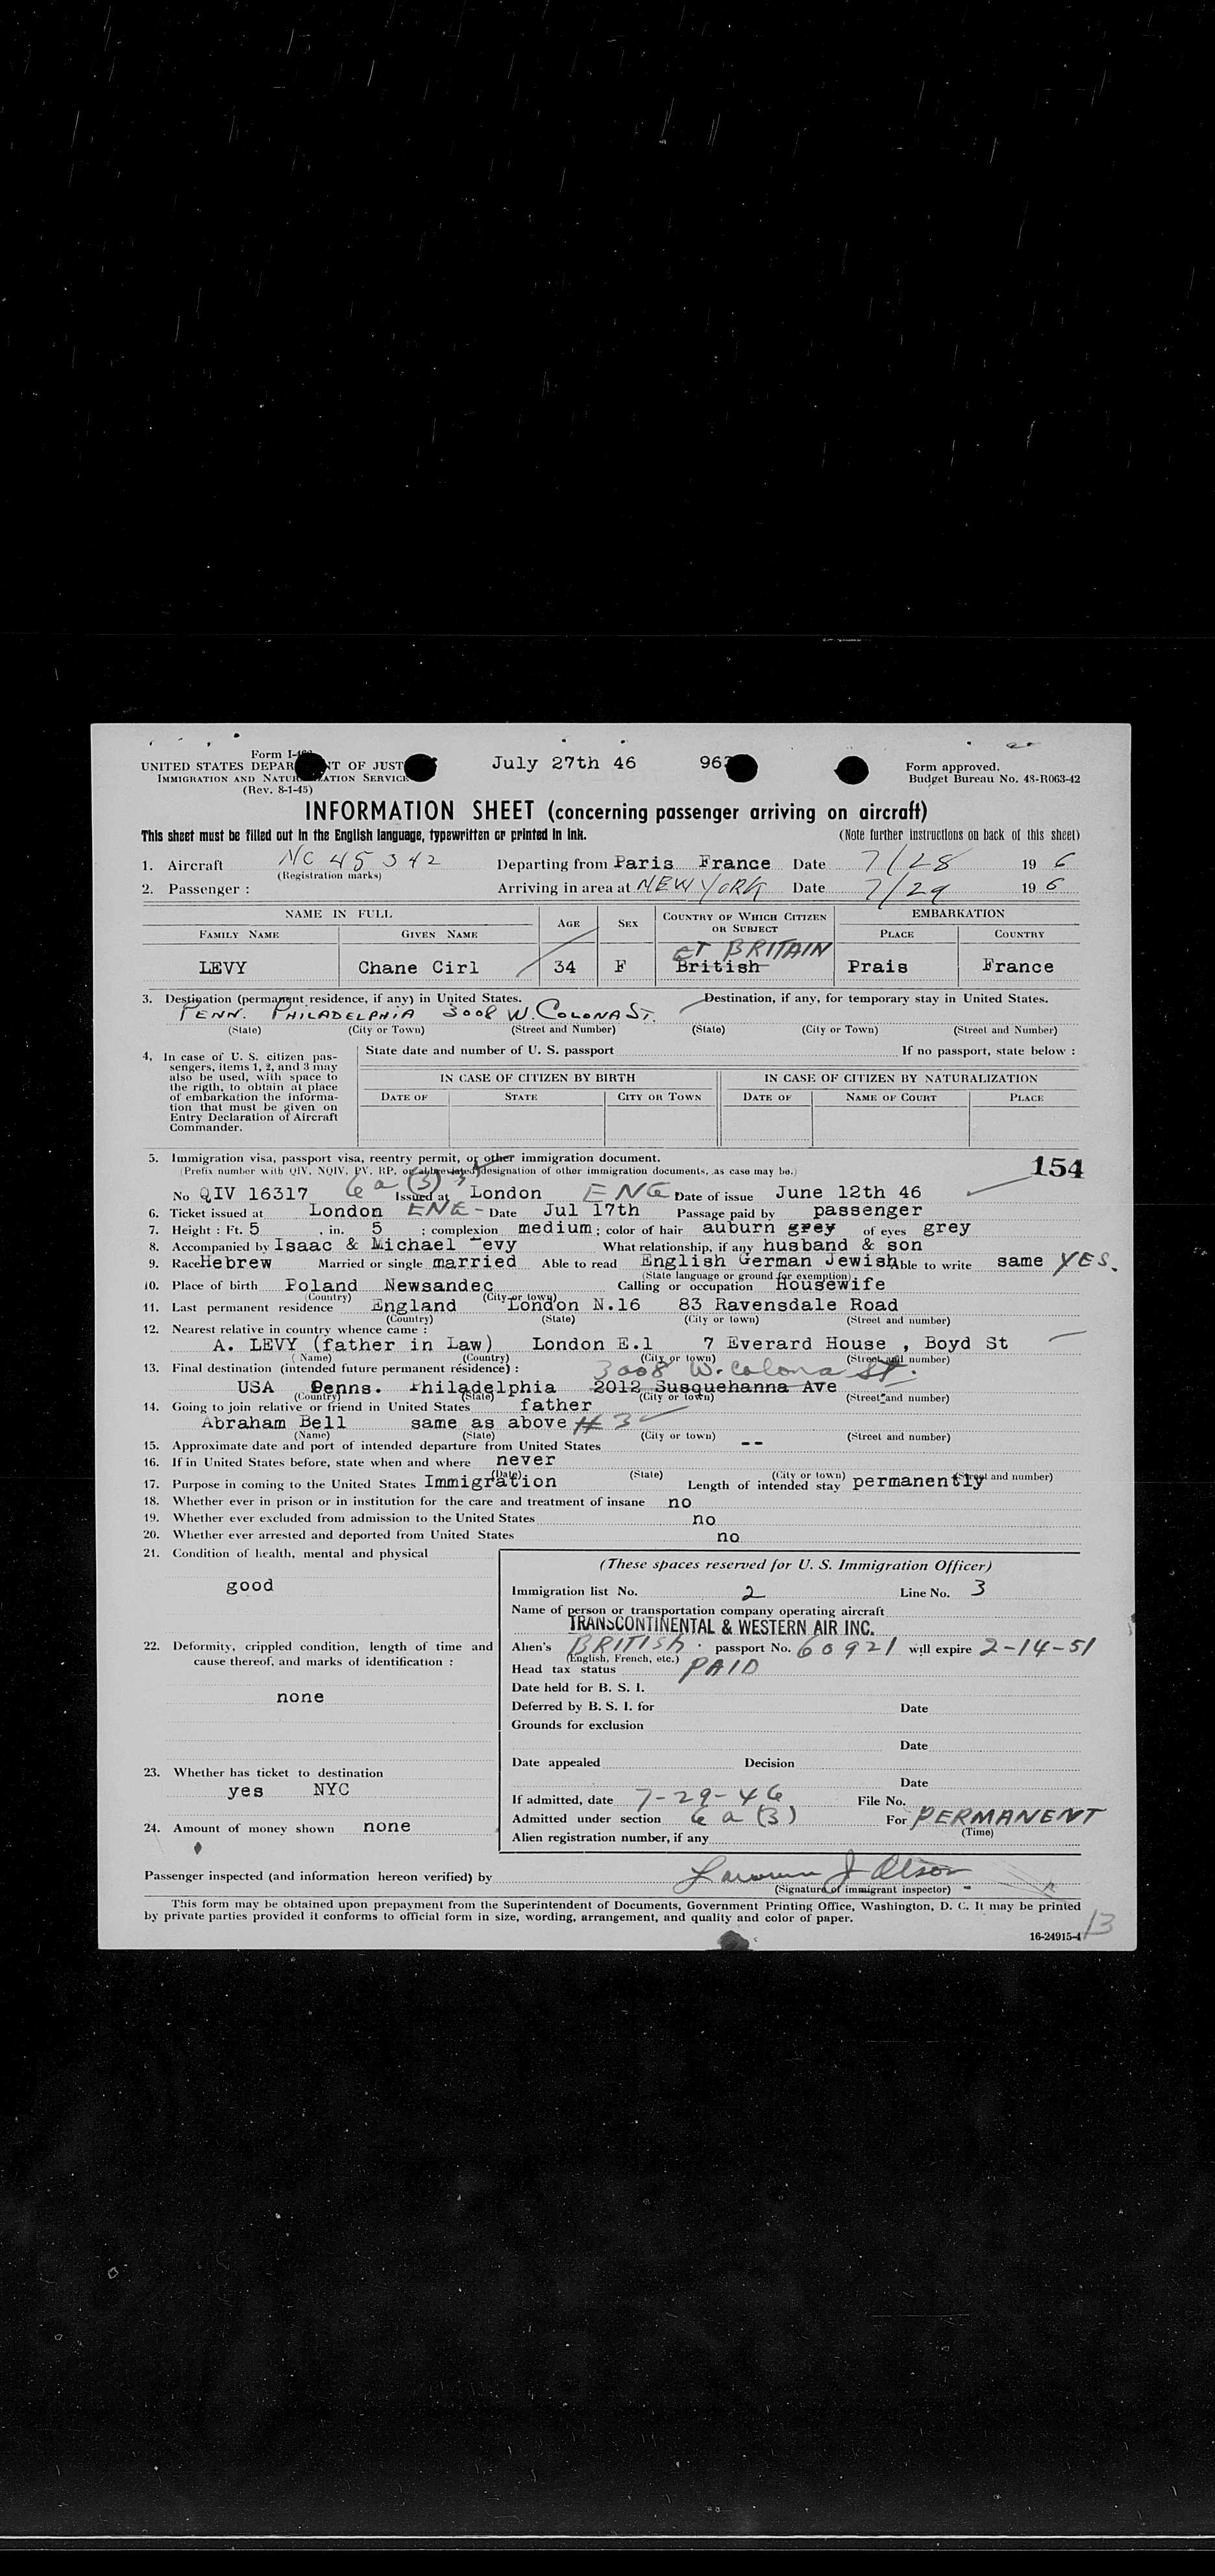 Form I-
July 27th 46 96
UNITED STATES DEPAR NT OF JUST
Form approved.
IMMIGRATION AND NATU ATION SERVICE
Budget Bureau No. 43-R063-42
(Rev. 8-1-45)
INFORMATION SHEET (concerning passenger arriving on aircraft)
This sheet must be filled out in the English language, typewritten or printed in ink. (Note further instructions on back of this sheet)
1. Aircraft NC 45342 Departing from Paris France Date 7/28 19 6
(Registration marks)
2. Passenger : Arriving in area at NEW YORK Date 7/29 19 6
NAME IN FULL AGE SEX COUNTRY OF WHICH CITIZEN OR SUBJECT EMBARKATION
FAMILY NAME GIVEN NAME PLACE COUNTRY
GT BRITAIN
LEVY Chane Cirl 34 F British Prais France
3. Destination (permanent residence, if any) in United States. Destination, if any, for temporary stay in United States.
PENN. PHILADELPHIA 3008 W. COLONA ST.
(State) (City or Town) (Street and Number) (State) (City or Town) (Street and Number)
4. In case of U. S. citizen pas-
sengers, items 1, 2, and 3 may
also be used, with space to
the rigth, to obtain at place
of embarkation the informa-
tion that must be given on
Entry Declaration of Aircraft
Commander.
State date and number of U. S. passport If no passport, state below :
IN CASE OF CITIZEN BY BIRTH IN CASE OF CITIZEN BY NATURALIZATION
DATE OF STATE CITY OR TOWN DATE OF NAME OF COURT PLACE
5. Immigration visa, passport visa, reentry permit, or other immigration document.
(Prefix number with QIV, NQIV, PV, RP, or abbreviated designation of other immigration documents, as case may be.) 154
6a(3)
No QIV 16317 Issued at London ENG Date of issue June 12th 46
6. Ticket issued at London ENG- Date Jul 17th Passage paid by passenger
7. Height : Ft. 5 , in. 5 ; complexion medium ; color of hair auburn grey of eyes grey
8. Accompanied by Isaac & Michael Levy What relationship, if any husband & son
9. Race Hebrew Married or single married Able to read English German Jewish Able to write same YES.
(State language or ground for exemption)
10. Place of birth Poland Newsandec Calling or occupation Housewife
(Country) (City or town)
11. Last permanent residence England London N.16 83 Ravensdale Road
(Country) (State) (City or town) (Street and number)
12. Nearest relative in country whence came :
A. LEVY (father in Law) London E.1 7 Everard House , Boyd St
(Name) (Country) (City or town) (Street and number)
13. Final destination (intended future permanent résidence) : 3008 W. Colona St.
USA Penns. Philadelphia 2012 Susquehanna Ave
(Country) (State) (City or town) (Street and number)
14. Going to join relative or friend in United States father
Abraham Bell same as above #3
(Name) (State) (City or town) (Street and number)
15. Approximate date and port of intended departure from United States --
16. If in United States before, state when and where never
(Date) (State) (City or town) (Street and number)
17. Purpose in coming to the United States Immigration Length of intended stay permanently
18. Whether ever in prison or in institution for the care and treatment of insane no
19. Whether ever excluded from admission to the United States no
20. Whether ever arrested and deported from United States no
21. Condition of health, mental and physical
good
22. Deformity, crippled condition, length of time and
cause thereof, and marks of identification :
none
23. Whether has ticket to destination
yes NYC
24. Amount of money shown none
(These spaces reserved for U. S. Immigration Officer)
Immigration list No. 2 Line No. 3
Name of person or transportation company operating aircraft
TRANSCONTINENTAL & WESTERN AIR INC.
Alien's BRITISH. passport No. 60921 will expire 2-14-51
(English, French, etc.)
Head tax status PAID
Date held for B. S. I.
Deferred by B. S. I. for Date
Grounds for exclusion
Date
Date appealed Decision
Date
If admitted, date 7-29-46 File No.
Admitted under section 6a(3) For PERMANENT
(Time)
Alien registration number, if any
Passenger inspected (and information hereon verified) by J Olson
(Signature of immigrant inspector)
This form may be obtained upon prepayment from the Superintendent of Documents, Government Printing Office, Washington, D. C. It may be printed
by private parties provided it conforms to official form in size, wording, arrangement, and quality and color of paper.
16-24915-4
13